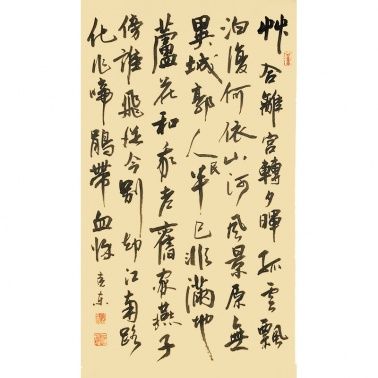 艸合離宮轉夕暉孤雲飄
泊復何依山河風景原無
異城郭人民半已非滿地
蘆花和我老舊家燕子
傍誰飛從今別却江南路
化作啼鵑帶血歸